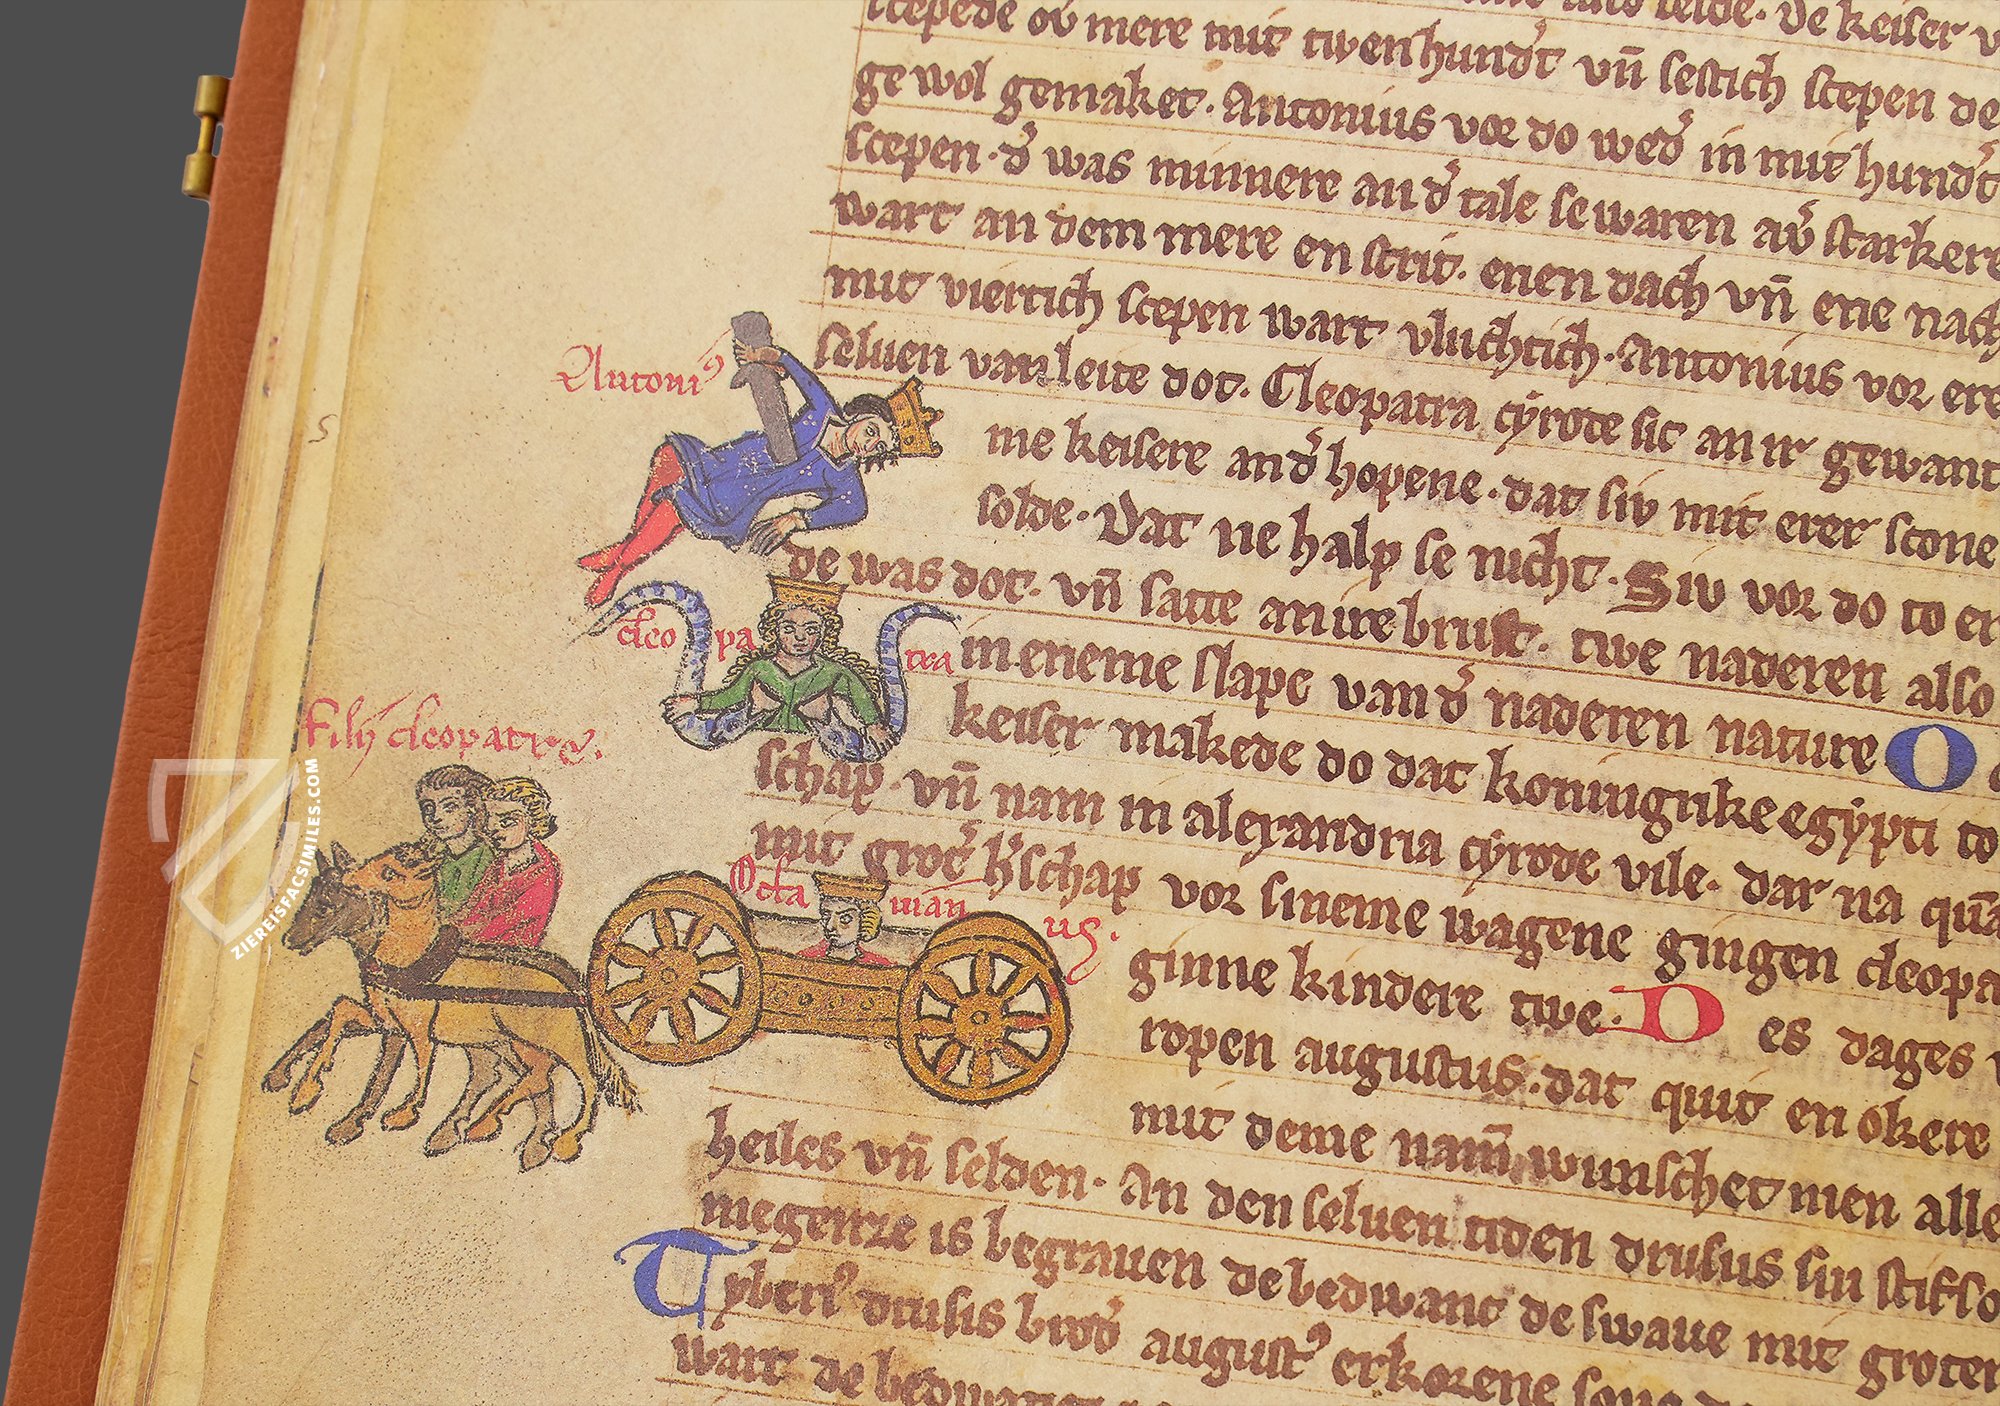 scepede ov mere mit twenhundt vn̄ sestich scepen de
ge wol gemaket. Antonius vor do wed in mit hundt
scepen. d was minnere an d tale se waren av starkere
wart an dem mere en strit. enen dach vn̄ ene nach
mit viertich scepen wart vluchtich. Antonius vor ere
seluen van leite dot. Cleopatra cyrote sic an ir gewant
me keisere and hopene. dat siv mit erer scone
solde. Dat ne halp se nicht. Siv vor do to er
de was dot. vn̄ satte an ire brust. twe naderen also
in eneme slape van d naderen nature O
keiser makede do dat koningrike egypti to
schap. vn̄ nam in alexandria cyrode vile. dar na qua
mit grot hschap vor sineme wagene gingen cleopa
ginne kindere twe. D es dages
ropen augustus. dat quit en okere
mit deme nam̄ wunschet men alle
heiles vn̄ selden. An den seluen tiden drusus sin stifso
megentze is begrauen de bedwanc de swaue mit groten
Tyberi⁹ drusis brod august⁹ erkorene sone
wart de
Antoni⁹
cleo pa tra
Filij cleopatre.
Octa uian us.
ZIEREISFACSIMILES.COM